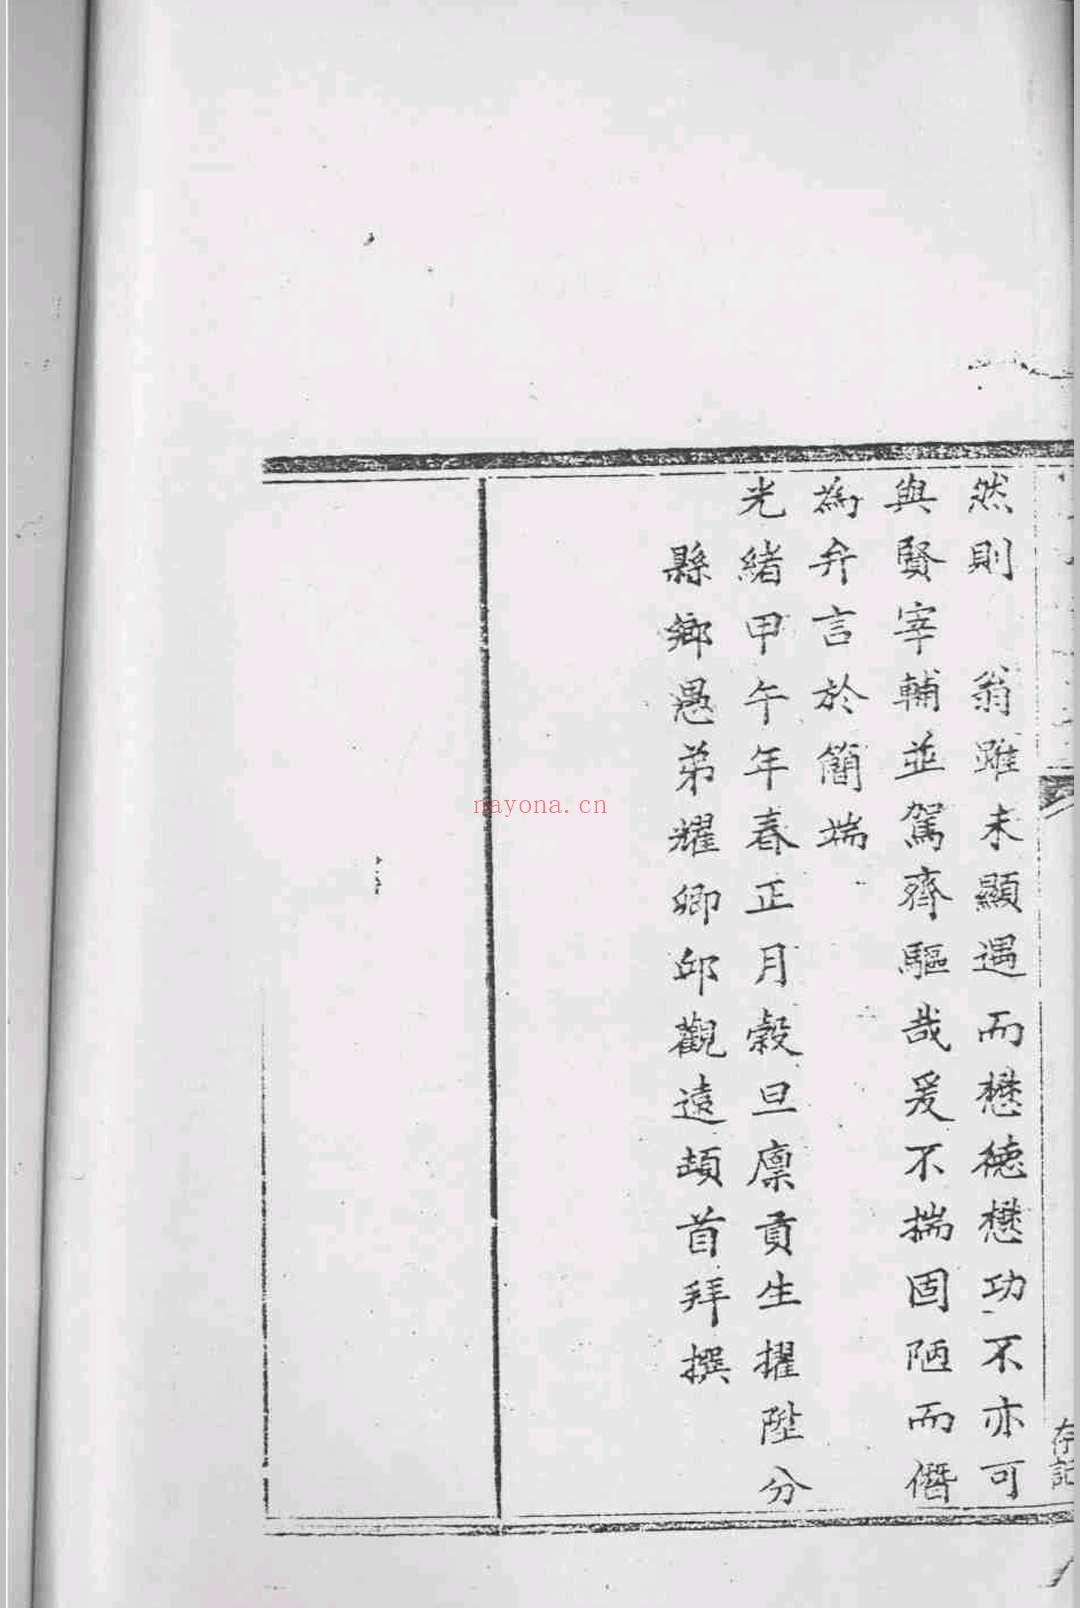 然則　翁雖未顯遇而懋德懋功不亦可
與賢宰輔並駕齊驅哉爰不揣固陋而僭
為弁言於簡端
光緒甲午年春正月穀旦廩貢生擢陞分
縣鄉愚弟耀卿邱觀遠頓首拜撰
存記
nayona.cn